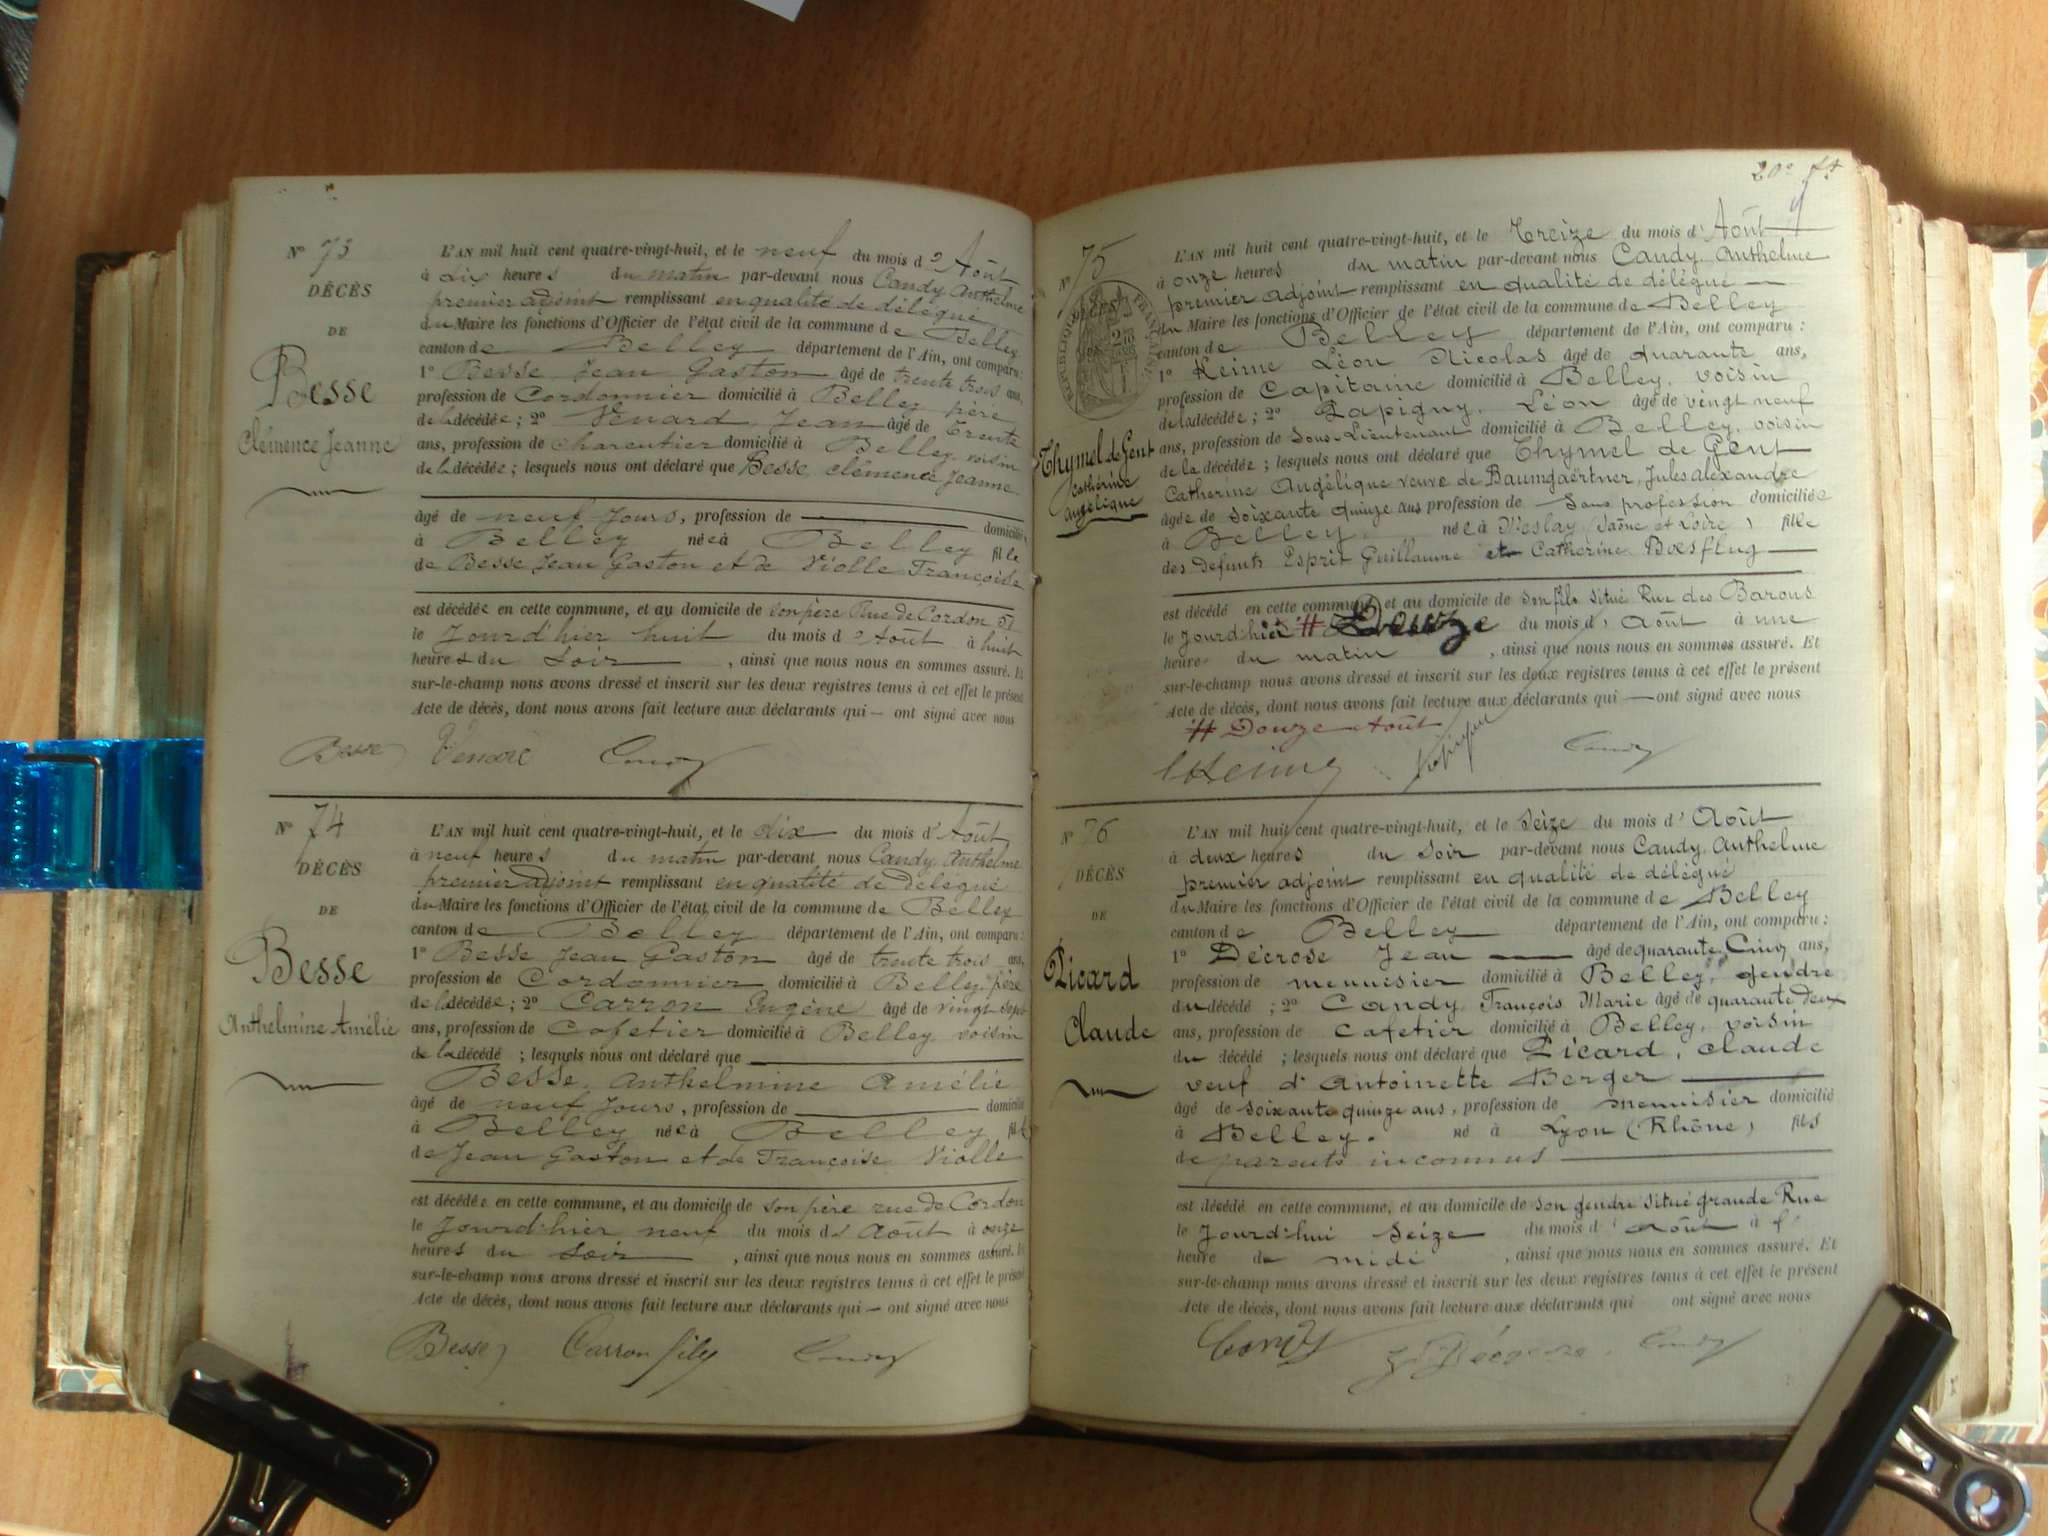 N° 73
DÉCÈS
DE
Besse
Clémence Jeanne
L'AN mil huit cent quatre-vingt-huit, et le neuf du mois d' Août
à dix heures du matin par-devant nous Candy Anthelme
premier adjoint remplissant en qualité de délégué
du Maire les fonctions d'Officier de l'état civil de la commune de Belley
canton de Belley département de l'Ain, ont comparu :
1° Besse Jean Gaston âgé de trente trois ans,
profession de Cordonnier domicilié à Belley père
de la décédée ; 2° Venard Jean âgé de Trente
ans, profession de charcutier domicilié à Belley voisin
de la décédée ; lesquels nous ont déclaré que Besse, clémence Jeanne
âgé de neuf Jours, profession de domicilié
à Belley née à Belley fille
de Besse Jean Gaston et de Violle Françoise
est décédée en cette commune, et au domicile de son père Rue de Cordon 51
le Jourd'hier huit du mois d'Août à huit
heures du Soir , ainsi que nous nous en sommes assuré. Et
sur-le-champ nous avons dressé et inscrit sur les deux registres tenus à cet effet le présent
Acte de décès, dont nous avons fait lecture aux déclarants qui — ont signé avec nous
Besse Venard Candy
N° 74
DÉCÈS
DE
Besse
Anthelmine Amélie
L'AN mil huit cent quatre-vingt-huit, et le dix du mois d' Août
à neuf heures du matin par-devant nous Candy Anthelme
premier adjoint remplissant en qualité de délégué
du Maire les fonctions d'Officier de l'état civil de la commune de Belley
canton de Belley département de l'Ain, ont comparu :
1° Besse Jean Gaston âgé de trente trois ans,
profession de Cordonnier domicilié à Belley, père
de la décédée ; 2° Carron Eugène âgé de vingt sept
ans, profession de Cafetier domicilié à Belley voisin
de la décédé ; lesquels nous ont déclaré que
Besse, Anthelmine Amélie
âgé de neuf Jours, profession de domicilié
à Belley née à Belley fille
de Jean Gaston et de Françoise Violle
est décédée en cette commune, et au domicile de son père rue de Cordon
le Jourd'hier neuf du mois d' Août à onze
heures du Soir , ainsi que nous nous en sommes assuré. Et
sur-le-champ nous avons dressé et inscrit sur les deux registres tenus à cet effet le présent
Acte de décès, dont nous avons fait lecture aux déclarants qui — ont signé avec nous
Besse Carron fils Candy
20e ft
N° 75
RÉPUBLIQUE FRANÇAISE
Thymel de Gent
Catherine
Angélique
L'AN mil huit cent quatre-vingt-huit, et le Treize du mois d' Août
à onze heures du matin par-devant nous Candy Anthelme
premier adjoint remplissant en qualité de délégué
du Maire les fonctions d'Officier de l'état civil de la commune de Belley
canton de Belley département de l'Ain, ont comparu :
1° Keime Léon Nicolas âgé de quarante ans,
profession de Capitaine domicilié à Belley, voisin
de la décédée ; 2° Papigny, Léon âgé de vingt neuf
ans, profession de Sous-Lieutenant domicilié à Belley, voisin
de la décédée ; lesquels nous ont déclaré que Thymel de Gent
Catherine Angélique veuve de Baumgaërtner, Jules Alexandre
âgée de soixante quinze ans profession de Sans profession domiciliée
à Belley, née à Meslay (Saône et Loire) fille
des défunts Esprit Guillaume et Catherine Boesflug
est décédé en cette commune, et au domicile de son fils situé Rue des Barons
le Jourd'hier # Douze du mois d' Août à une
heure du matin , ainsi que nous nous en sommes assuré. Et
sur-le-champ nous avons dressé et inscrit sur les deux registres tenus à cet effet le présent
Acte de décès, dont nous avons fait lecture aux déclarants qui — ont signé avec nous
# Douze Août
Candy
N° 76
DÉCÈS
DE
Picard
Claude
L'AN mil huit cent quatre-vingt-huit, et le Seize du mois d' Août
à deux heures du soir par-devant nous Candy Anthelme
premier adjoint remplissant en qualité de délégué
du Maire les fonctions d'Officier de l'état civil de la commune de Belley
canton de Belley département de l'Ain, ont comparu :
1° Décrose Jean âgé de quarante Cinq ans,
profession de menuisier domicilié à Belley, gendre
du décédé ; 2° Candy François Marie âgé de quarante deux
ans, profession de cafetier domicilié à Belley, voisin
du décédé ; lesquels nous ont déclaré que Picard, claude
veuf d'Antoinette Berger
âgé de soixante quinze ans, profession de menuisier domicilié
à Belley. né à Lyon (Rhône) fils
de parents inconnus
est décédé en cette commune, et au domicile de son gendre situé grande Rue
le Jourd'hui Seize du mois d' Août à l'
heure de midi , ainsi que nous nous en sommes assuré. Et
sur-le-champ nous avons dressé et inscrit sur les deux registres tenus à cet effet le présent
Acte de décès, dont nous avons fait lecture aux déclarants qui ont signé avec nous
Candy Candy